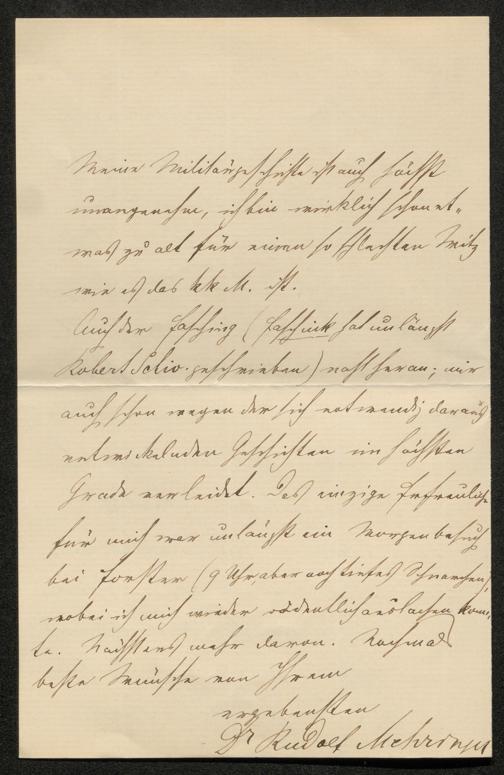 Meine Militärgeschichte ist auch höchst
unangenehm, ich bin wirklich schon et-
was zu alt für einen so schlechten Witz
wie es das kk M. ist.
Auch der Fasching (Faschink hat unlängst
Robert geschrieben) naht heran; mir
auch schon wegen der sich notwendig daraus
entwickelnden Geschichten im höchsten
Grade verleidet. Das einzige Erfreuliche
für mich war unlängst ein Morgenbesuch
bei Forster (9 Uhr, aber noch tiefes Schnarchen,
wobei ich mich wieder ordentlich auslachen konn-
te. Nächstens mehr davon. Nochmals
beste Wünsche von Ihrem
ergebensten
Dr Rudolf Mehringer